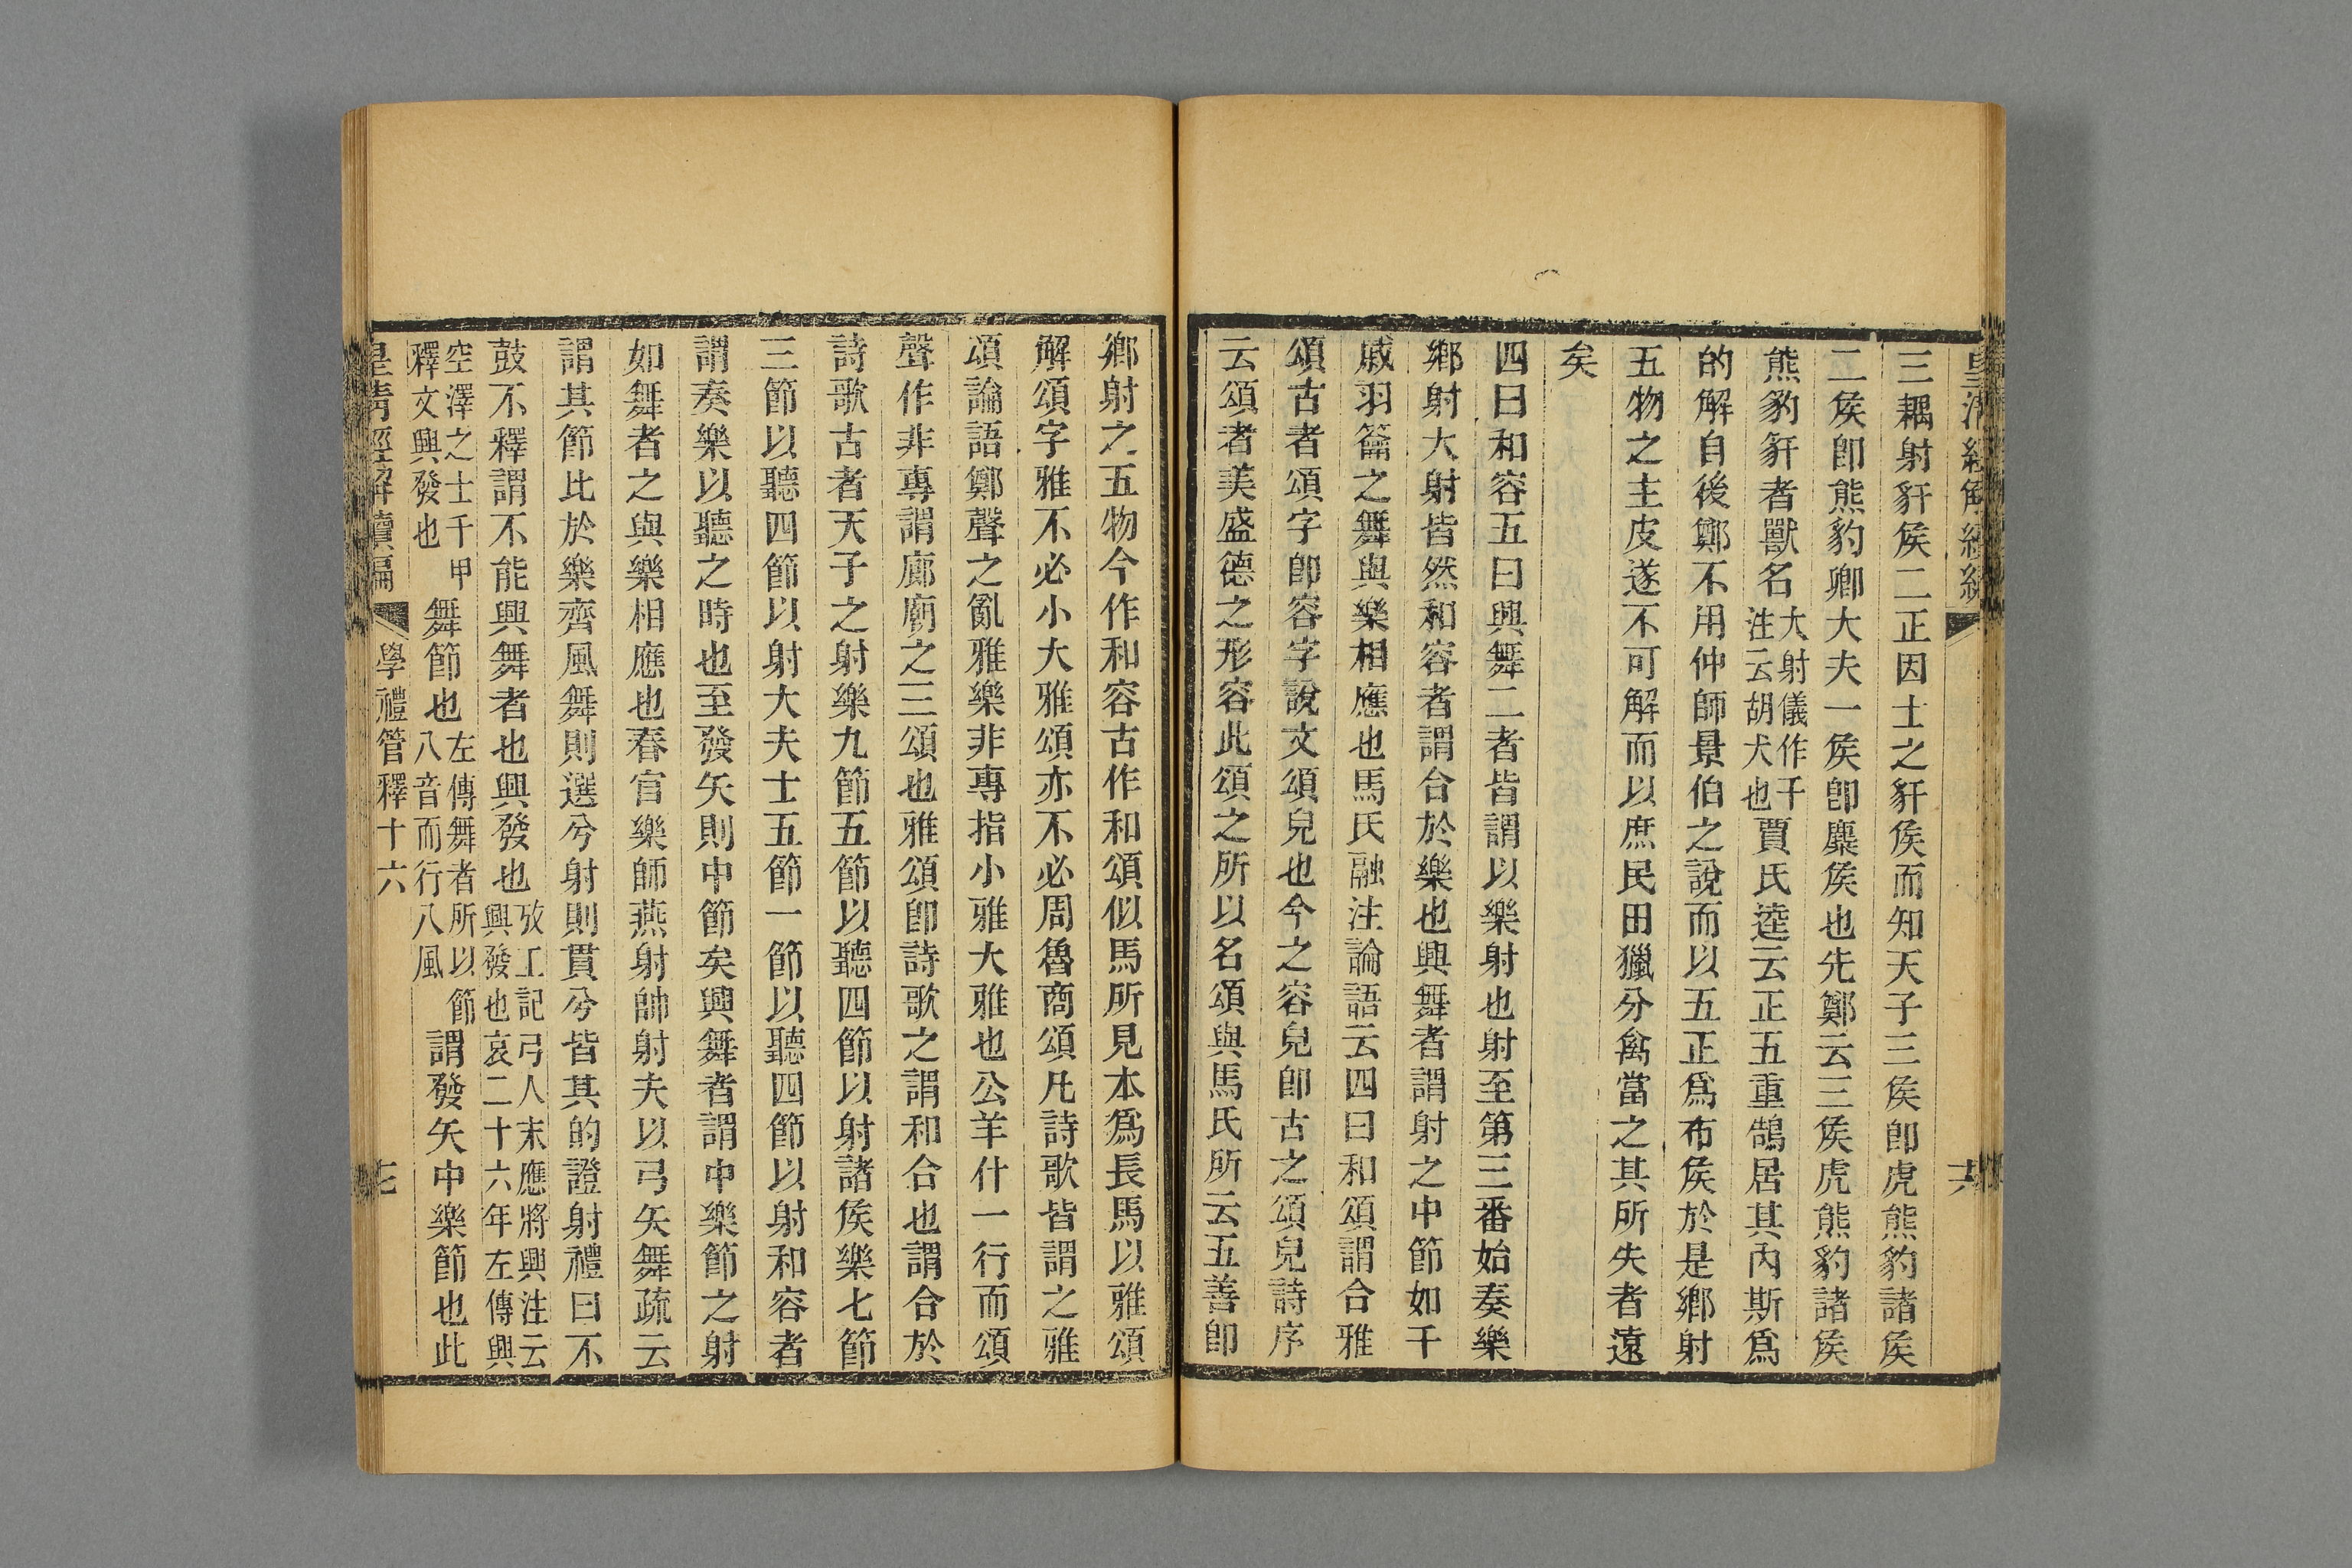 皇清經解續編
三耦射豻侯二正因士之豻侯而知天子三侯卽虎熊豹諸侯
二侯卽熊豹卿大夫一侯卽麋侯也先鄭云三侯虎熊豹諸侯
熊豹豻者獸名大射儀作干注云胡犬也賈氏逵云正五重鵠居其內斯爲
的解自後鄭不用仲師景伯之說而以五正爲布侯於是鄉射
五物之主皮遂不可解而以庶民田獵分禽當之其所失者遠
矣
四曰和容五曰興舞二者皆謂以樂射也射至第三番始奏樂
鄉射大射皆然和容者謂合於樂也興舞者謂射之中節如干
戚羽籥之舞與樂相應也馬氏融注論語云四曰和頌謂合雅
頌古者頌字卽容字說文頌皃也今之容皃卽古之頌皃詩序
云頌者美盛德之形容此頌之所以名頌與馬氏所云五善卽
鄉射之五物今作和容古作和頌似馬所見本爲長馬以雅頌
解頌字雅不必小大雅頌亦不必周魯商頌凡詩歌皆謂之雅
頌論語鄭聲之亂雅樂非專指小雅大雅也公羊什一行而頌
聲作非專謂廊廟之三頌也雅頌卽詩歌之謂和合也謂合於
詩歌古者天子之射樂九節五節以聽四節以射諸侯樂七節
三節以聽四節以射大夫士五節一節以聽四節以射和容者
謂奏樂以聽之時也至發矢則中節矣興舞者謂中樂節之射
如舞者之與樂相應也春官樂師燕射帥射夫以弓矢舞疏云
謂其節比於樂齊風舞則選兮射則貫兮皆其的證射禮曰不
鼓不釋謂不能興舞者也興發也攷工記弓人末應將興注云興發也哀二十六年左傳興
空澤之士千甲釋文興發也舞節也左傳舞者所以節八音而行八風謂發矢中樂節也此
皇清經解續編
學禮管釋十六